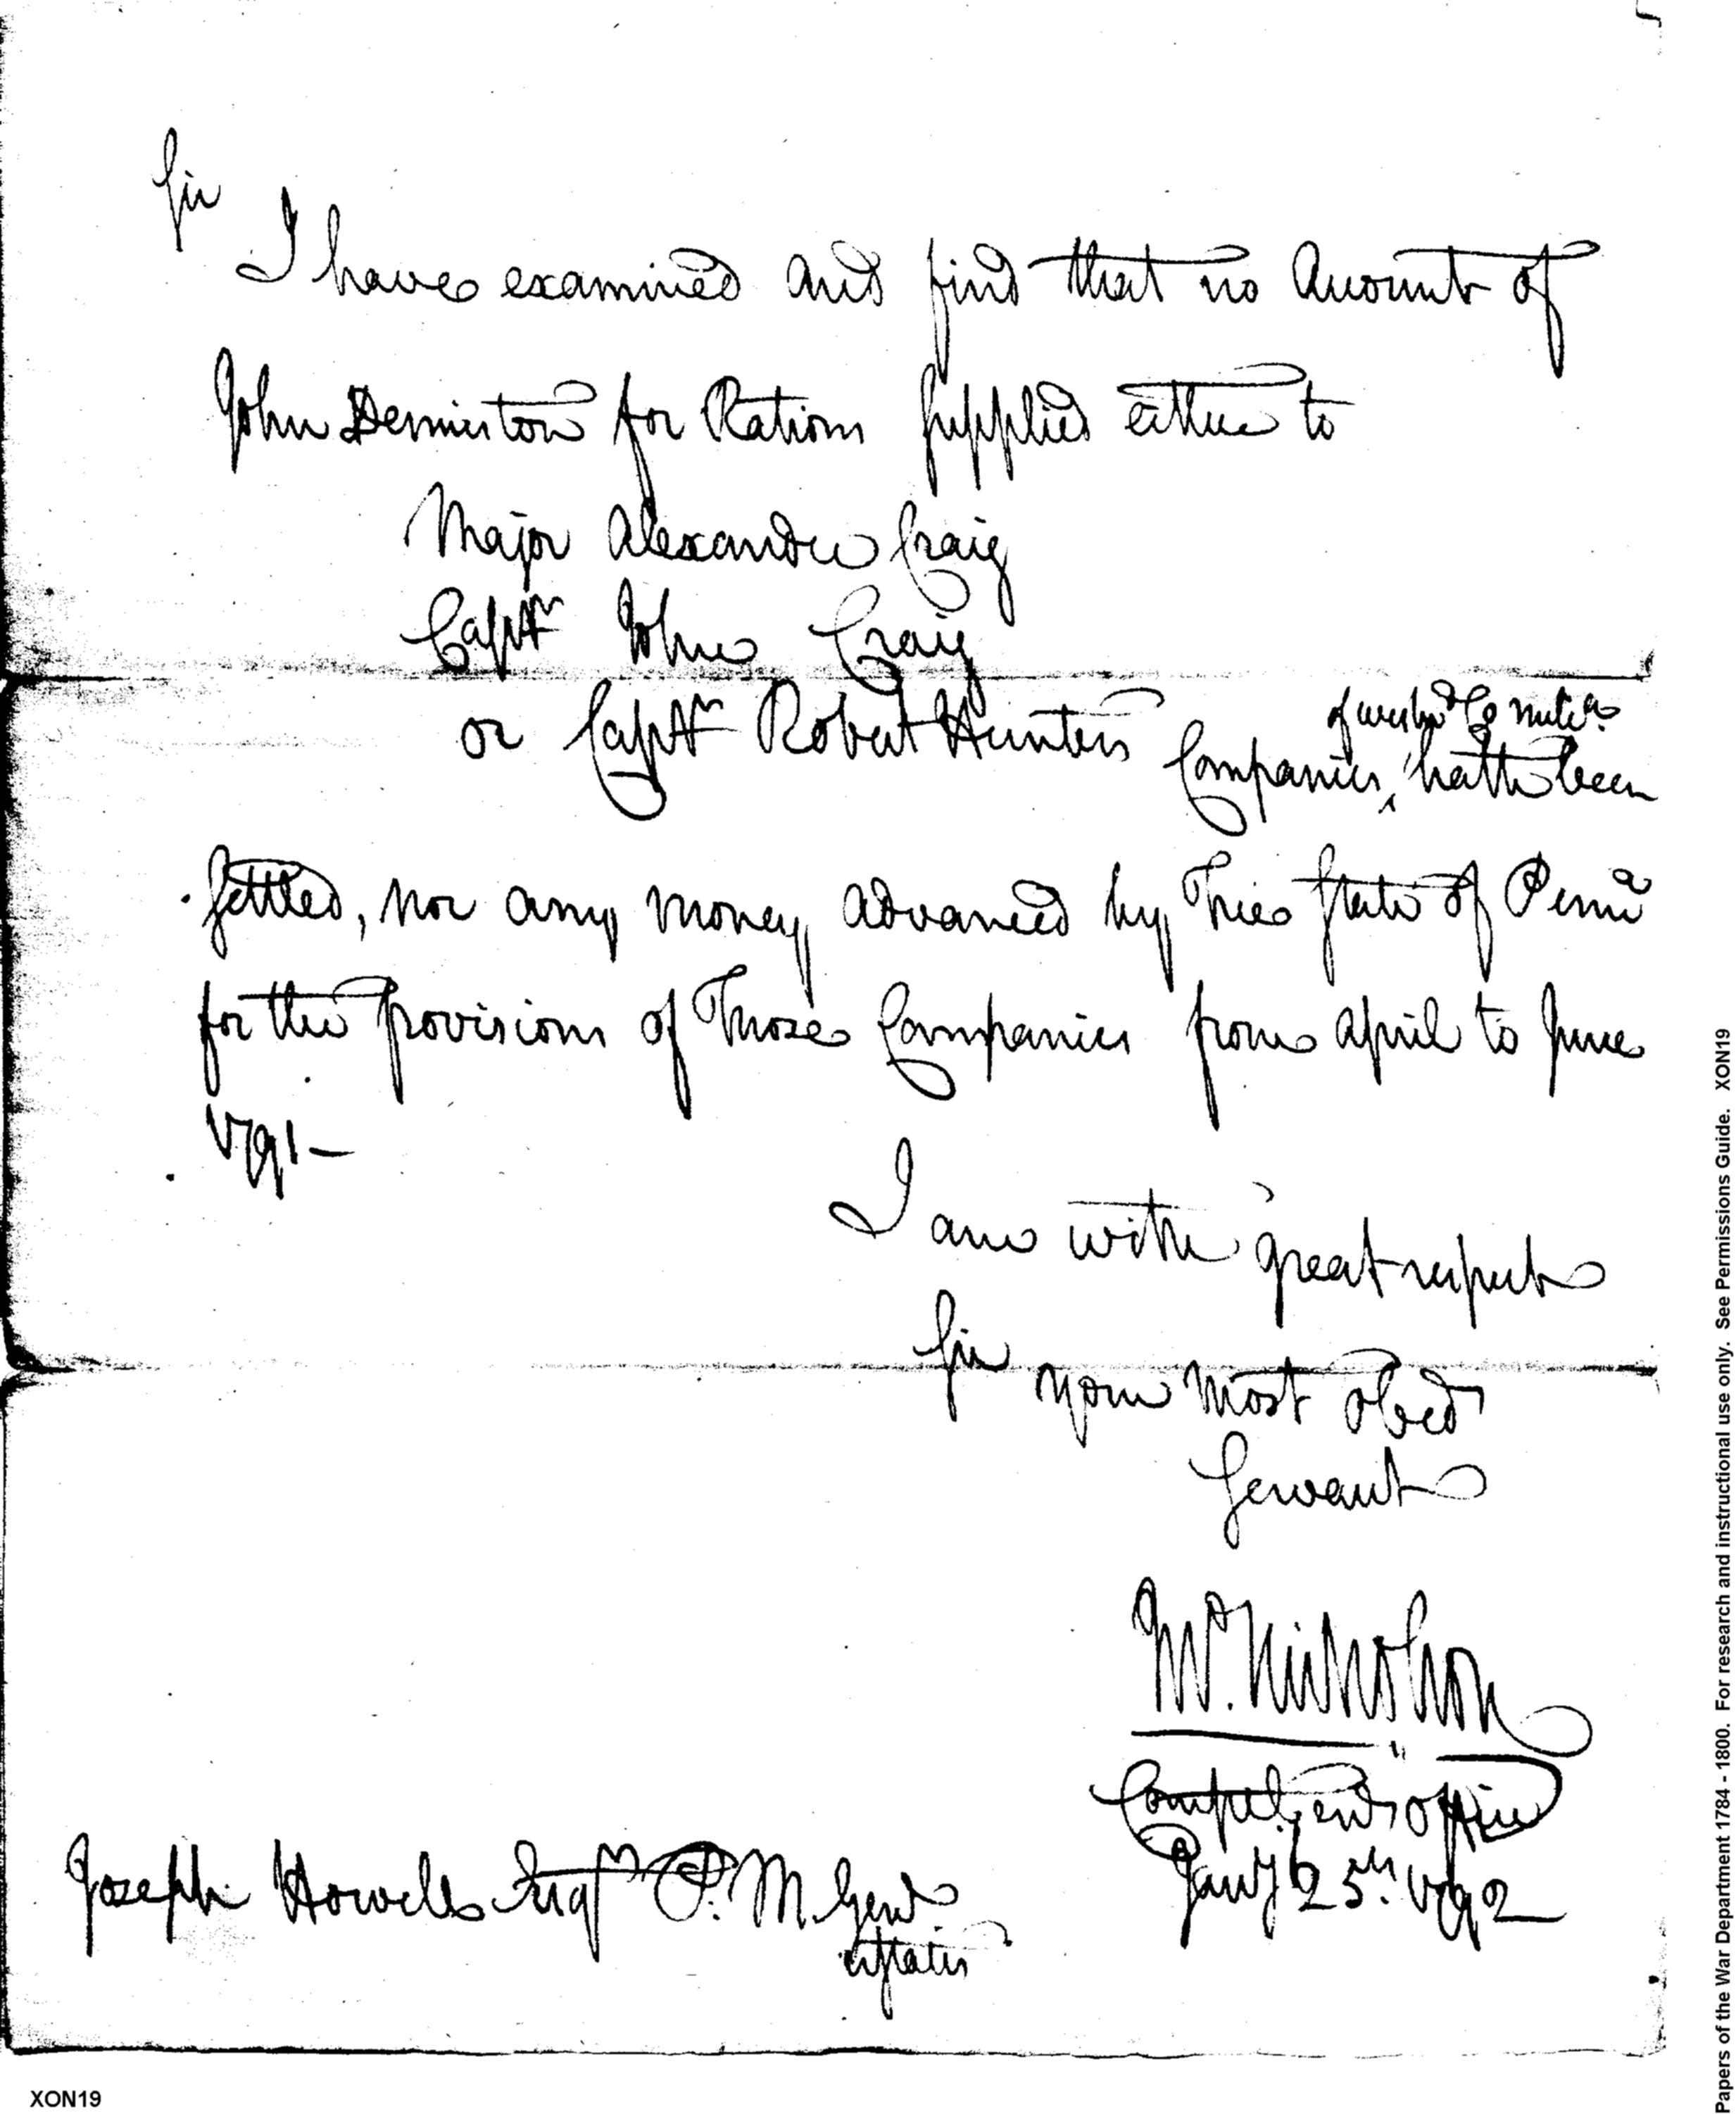 Sir
I have examined and find that no Account of
John Denniston for Rations Supplied either to
Major Alexander Craig
Captn John Craig
or Captn Robert Hunters Companies, hath been
of Westmd Co Militia
Settled, nor any money advanced by The State of Penna
for the provisions of Those Companies from April to June
1791 —
I am with great respect
Sir your most obed
Servant
Jno. Nicholson
Compt Genls Office
Jany 25th. 1792
Joseph Howell Esqr P. M. Genl.
U States
XON19
Papers of the War Department 1784 - 1800. For research and instructional use only. See Permissions Guide. XON19